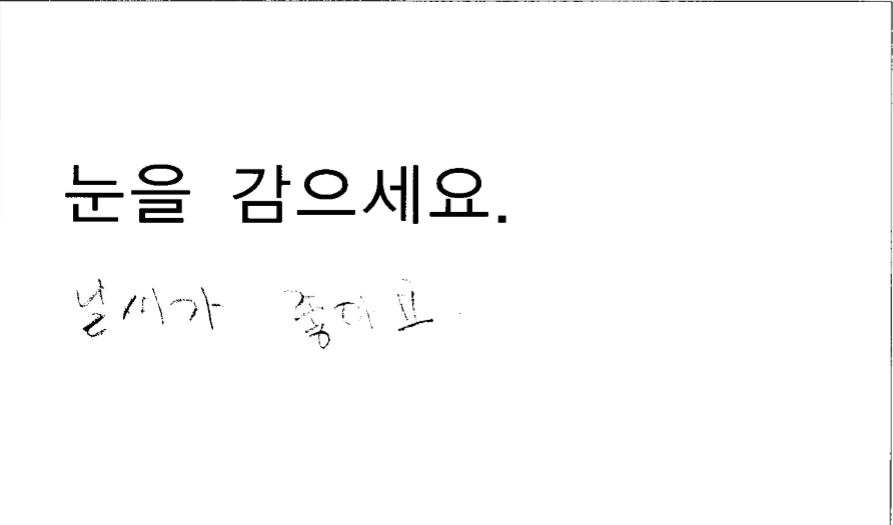 눈을 감으세요.
날씨가 좋아요.